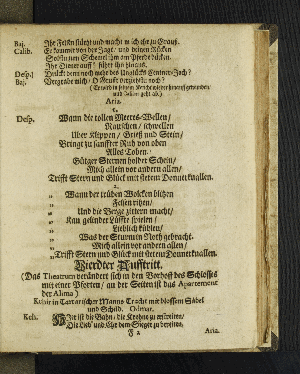 Baj. Ihr Felsen stürtzt und macht mich ihr zu Graus.
Calib. Er kommt von der Jagt / und deinen Rücken
Soll an dem Schemel ihm am Pferde drücken.
Ihr Diener auff! führt ihn hinaus.
Desp. Drückt denn noch mehr des Unglücks Centner-Joch?
Baj. noch?
(Er wird in seinem Kercher wieder
und geht ab.)
Aria.
1.
Desp. Wann die tollen Meeres-Wellen /
Rauschen / schwellen
Uber Klippen / Grieß und Stein /
Bringt zu sanffter Ruh von oben
Alles Toben.
Gütger Sternen holder Schein /
Mich allein vor andern allen /
Trifft Stern und Glück mit stetem Donnerknallen.
2.
Wann der trüben Wolcken blühen
Felsen
Und die Berge zittern macht /
Kan gesünder Lüffte spielen /
Lieblich kühlen /
Was der Sturmein Noth gebracht.
Mich allein vor andern allen /
Trifft Stern und Glück mit stetem Donnerknallen.
Vierdter Aufftritt.
(Das Theatrum verändert sich in den Vorhoff des Schlosses
mit einer Pforten / an der Seiten ist das Apartement
der Alima)
in Tartarischer Manns Tracht mit blossem Säbel
und Schild. Odmar.
Keh. Hier ist die Bahn / die Krohne zu
Die Lieb' und Ehr dem Siege zu
F 2 Aria.